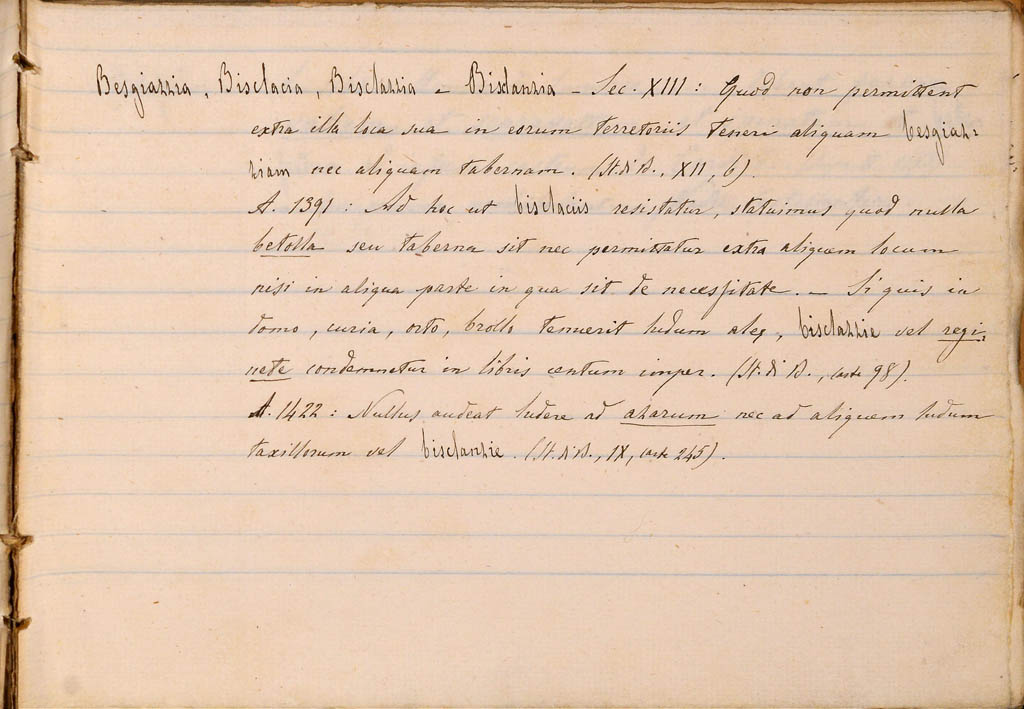 Besgiazzia, Bisclacia, Bisclazzia - Bisclanzia - Sec. XIII: Quod non permittent
extra illa loca sua in eorum terretoriis teneri aliquam besgiaz=
ziam nec aliquam tabernam. (St. di B., XII, 6).
A. 1391: Ad hoc ut bisclaciis resistatur, statuimus quod nulla
betolla seu taberna sit nec permittatur extra aliquem locum
nisi in aliqua parte in qua sit de necessitate. - Si quis in
domo, curia, orto, brollo tenuerit ludum aleę, bisclazzie vel regi=
nete condemnetur in libris centum imper. (St. di B., carte 98).
A. 1422: Nullus audeat ludere ad azarum nec ad aliquem ludum
taxillorum vel bisclanzie. (St. di B., IX, carte 245).